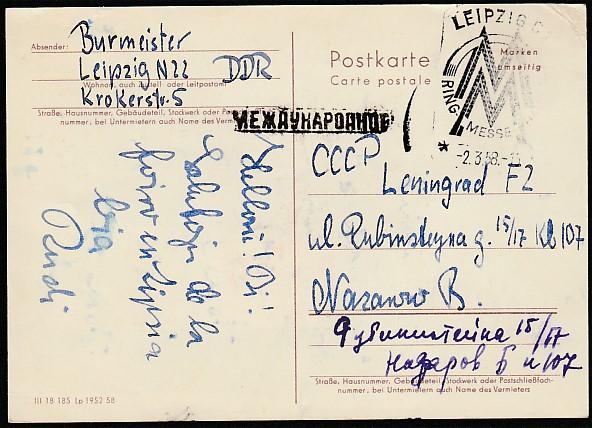 Absender:
Burmeister
Leipzig N22 DDR
Wohnort, auch Zustell- oder Leitpostamt
Krokerstr. 5
Straße, Hausnummer, Gebäudeteil, Stockwerk oder Postschließfach-
nummer, bei Untermietern auch Name des Vermieters
Postkarte
Carte postale
Marken
umseitig
LEIPZIG C
RING-MESSE
-2.3.58.-
МЕЖДУНАРОДНОЕ
СССР
Leningrad F2
ul. Rubinsteyna g. 15/17 Kb 107
Nazarow B.
Рубинштейна 15/17
Назаров Б к 107
Straße, Hausnummer, Gebäudeteil, Stockwerk oder Postschließfach-
nummer, bei Untermietern auch Name des Vermieters
Salutojn de la
foiro en Lipsia
via
Rudi
III 18 185 Lp 1952 58